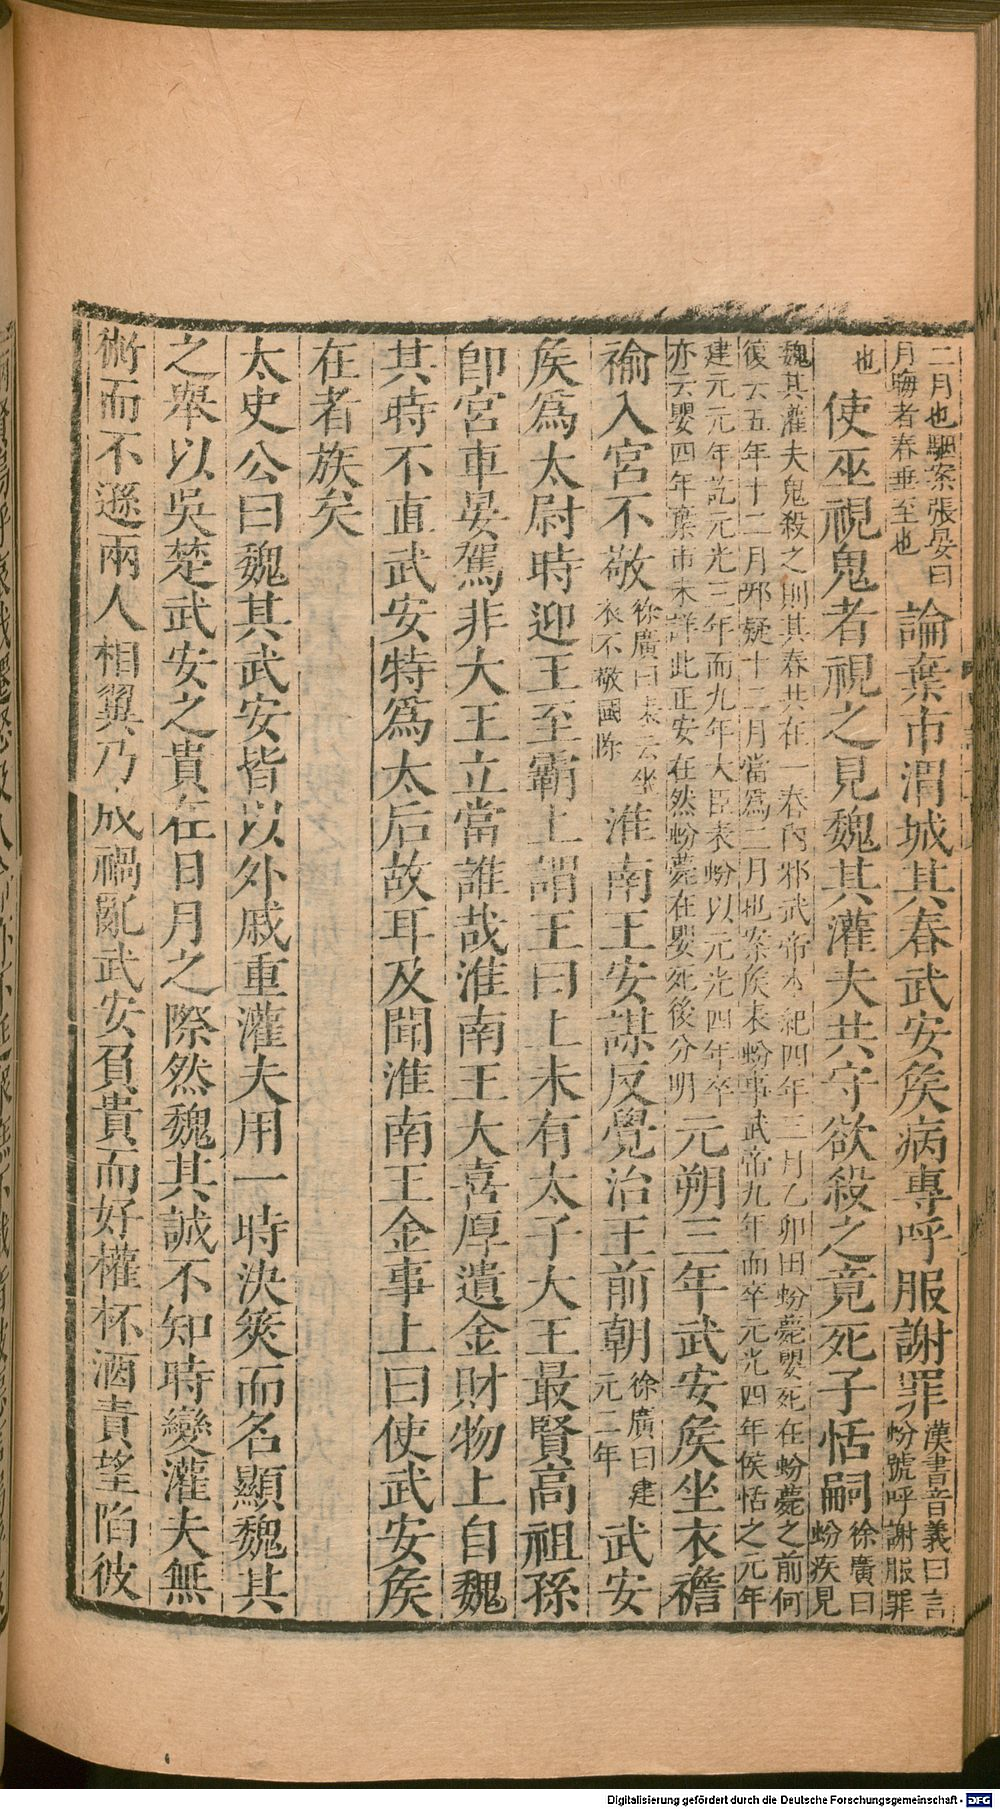 二月也駰案張晏曰
月晦者春垂至也
論棄市渭城其春武安矦病專呼服謝罪
漢書音義曰言
蚡號呼謝服罪
也
使巫視鬼者視之見魏其灌夫共守欲殺之竟死子恬嗣
徐廣曰
蚡疾見
魏其灌夫鬼殺之則其春共在一春內邪武帝本紀四年三月乙卯田蚡薨嬰死在蚡薨之前何
復云五年十二月邪疑十二月當爲二月也案矦表蚡事武帝九年而卒元光四年侯恬之元年
建元元年訖元光三年而九年大臣表蚡以元光四年卒
亦云嬰四年棄市未詳此正安在然蚡薨在嬰死後分明
元朔三年武安矦坐衣襜
褕入宮不敬
徐廣曰表云坐
衣不敬國除
淮南王安謀反覺治王前朝
徐廣曰建
元二年
武安
矦爲太尉時迎王至霸上謂王曰上未有太子大王最賢高祖孫
卽宮車晏駕非大王立當誰哉淮南王大喜厚遺金財物上自魏
其時不直武安特爲太后故耳及聞淮南王金事上曰使武安矦
在者族矣
太史公曰魏其武安皆以外戚重灌夫用一時決筴而名顯魏其
之舉以吳楚武安之貴在日月之際然魏其誠不知時變灌夫無
術而不遜兩人相翼乃成禍亂武安負貴而好權杯酒責望陷彼
Digitalisierung gefördert durch die Deutsche Forschungsgemeinschaft - DFG